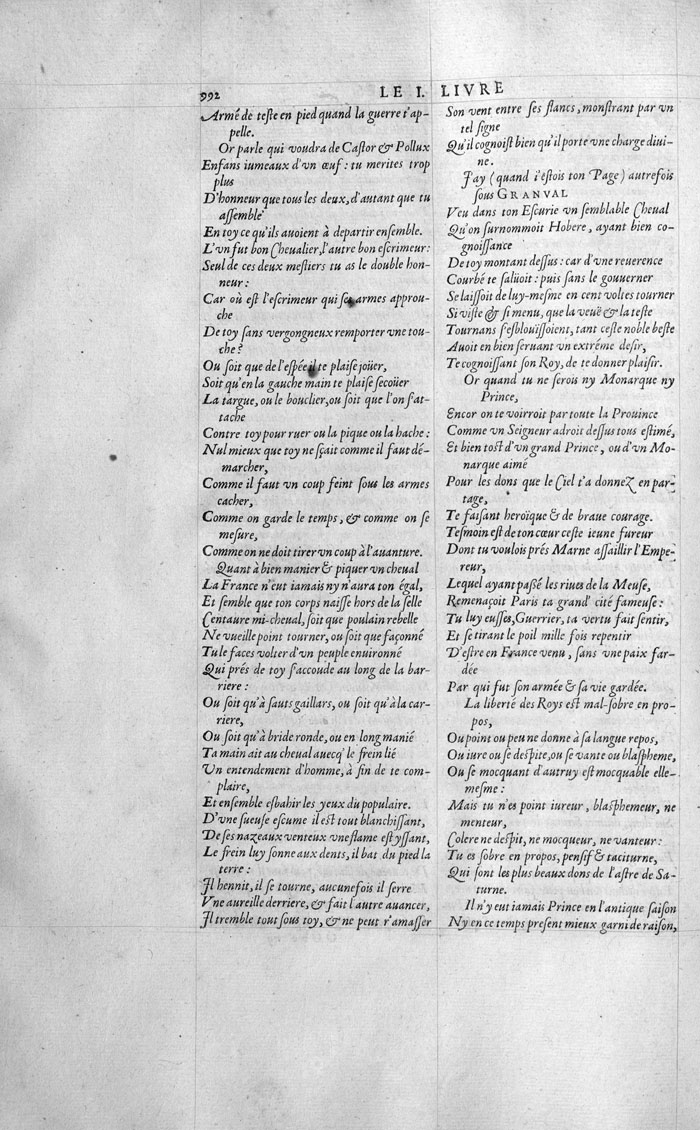 992
LE I. LIVRE
Armé de teste en pied quand la guerre t'ap-
pelle.
Or parle qui voudra de Castor & Pollux
Enfans iumeaux d'vn œuf: tu merites trop
plus
D'honneur que tous les deux, d'autant que tu
assemblé
En toy ce qu'ils auoient à departir ensemble.
L'vn fut bon Cheualier, l'autre bon escrimeur:
Seul de ces deux mestiers tu as le double hon-
neur:
Car où est l'escrimeur qui ses armes approu-
che
De toy sans vergongneux remporter vne tou-
che?
Ou soit que de l'espée il te plaise joüer,
Soit qu'en la gauche main te plaise secoüer
La targue, ou le bouclier, ou soit que l'on s'at-
tache
Contre toy pour ruer ou la pique ou la hache:
Nul mieux que toy ne sçait comme il faut dé-
marcher,
Comme il faut vn coup feint sous les armes
cacher,
Comme on garde le temps, & comme on se
mesure,
Comme on ne doit tirer vn coup à l'auanture.
Quant à bien manier & piquer vn cheual
La France n'eut iamais ny n'aura ton égal,
Et semble que ton corps naisse hors de la selle
Centaure mi-cheual, soit que poulain rebelle
Ne vueille point tourner, ou soit que façonné
Tu le faces volter d'vn peuple enuironné
Qui prés de toy s'accoude au long de la bar-
riere:
Ou soit qu'à sauts gaillars, ou soit qu'à la car-
riere,
Ou soit qu'à bride ronde, ou en long manié
Ta main ait au cheual auecq' le frein lié
Vn entendement d'homme, à fin de te com-
plaire,
Et ensemble esbahir les yeux du populaire.
D'vne sueuse escume il est tout blanchissant,
De ses nazeaux venteux vne flame est yssant,
Le frein luy sonne aux dents, il bat du pied la
terre:
Il hennit, il se tourne, aucunefois il serre
Vne aureille derriere, & fait l'autre auancer,
Il tremble tout sous toy, & ne peut r'amasser
Son vent entre ses flancs, monstrant par vn
tel signe
Qu'il cognoist bien qu'il porte vne charge diui-
ne.
J'ay (quand i'estois ton Page) autrefois
sous GRANVAL
Veu dans ton Escurie vn semblable Cheual
Qu'on surnommoit Hobere, ayant bien co-
gnoissance
De toy montant dessus: car d'vne reuerence
Courbé te salüoit: puis sans le gouuerner
Se laissoit de luy-mesme en cent voltes tourner
Si viste & si menu, que la veuë & la teste
Tournans s'esbloüissoient, tant ceste noble beste
Auoit en bien seruant vn extréme desir,
Te cognoissant son Roy, de te donner plaisir.
Or quand tu ne serois ny Monarque ny
Prince,
Encor on te voirroit par toute la Prouince
Comme vn Seigneur adroit dessus tous estimé,
Et bien tost d'vn grand Prince, ou d'vn Mo-
narque aimé
Pour les dons que le Ciel t'a donnez en par-
tage,
Te faisant heroïque & de braue courage.
Tesmoin est de ton cœur ceste ieune fureur
Dont tu voulois prés Marne assaillir l'Empe-
reur,
Lequel ayant passé les riues de la Meuse,
Remenaçoit Paris ta grand' cité fameuse:
Tu luy eusses, Guerrier, ta vertu fait sentir,
Et se tirant le poil mille fois repentir
D'estre en France venu, sans vne paix far-
dée
Par qui fut son armée & sa vie gardée.
La liberté des Roys est mal-sobre en pro-
pos,
Ou point ou peu ne donne à sa langue repos,
Ou iure ou se despite, ou se vante ou blaspheme,
Ou se mocquant d'autruy est mocquable elle-
mesme:
Mais tu n'es point iureur, blasphemeur, ne
menteur,
Colere ne despit, ne mocqueur, ne vanteur:
Tu es sobre en propos, pensif & taciturne,
Qui sont les plus beaux dons de l'astre de Sa-
turne.
Il n'y eut iamais Prince en l'antique saison
Ny en ce temps present mieux garni de raison,